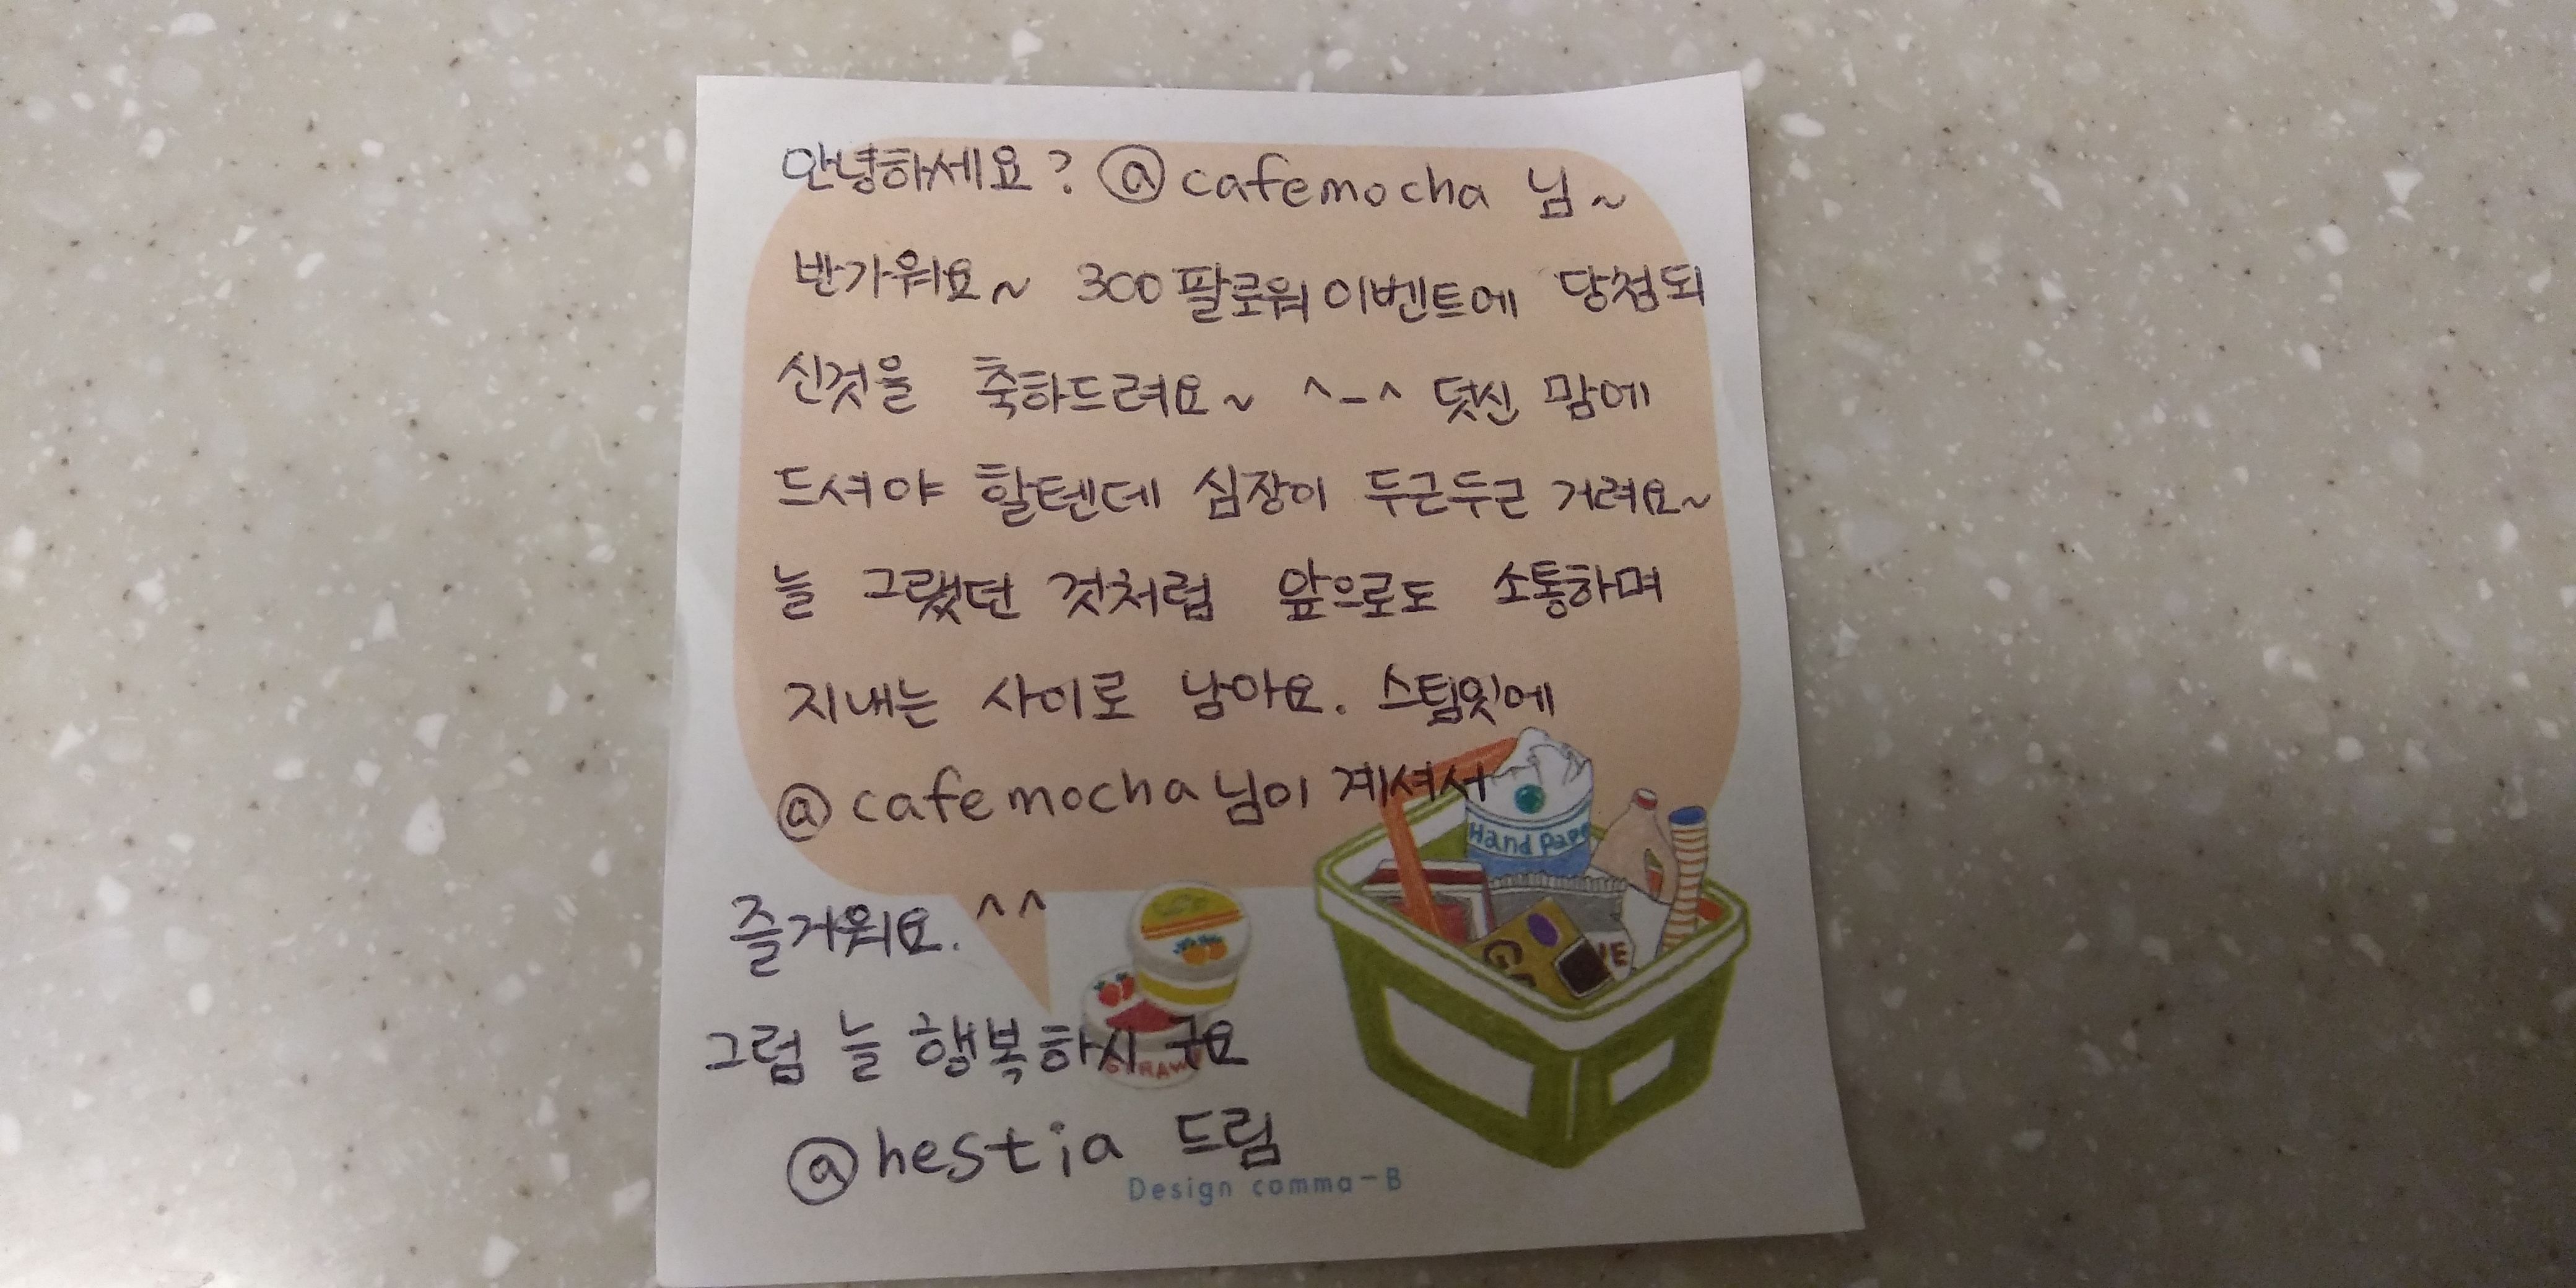 안녕하세요? @cafemocha 님~
반가워요~ 300팔로워 이벤트에 당첨되
신것을 축하드려요~ ^-^ 덧신 맘에
드셔야 할텐데 심장이 두근두근 거려요~
늘 그랬던 것처럼 앞으로도 소통하며
지내는 사이로 남아요. 스팀잇에
@cafemocha님이 계셔서
Hand Pape
즐거워요. ^^
그럼 늘 행복하시구요
@hestia 드림
Design comma-B